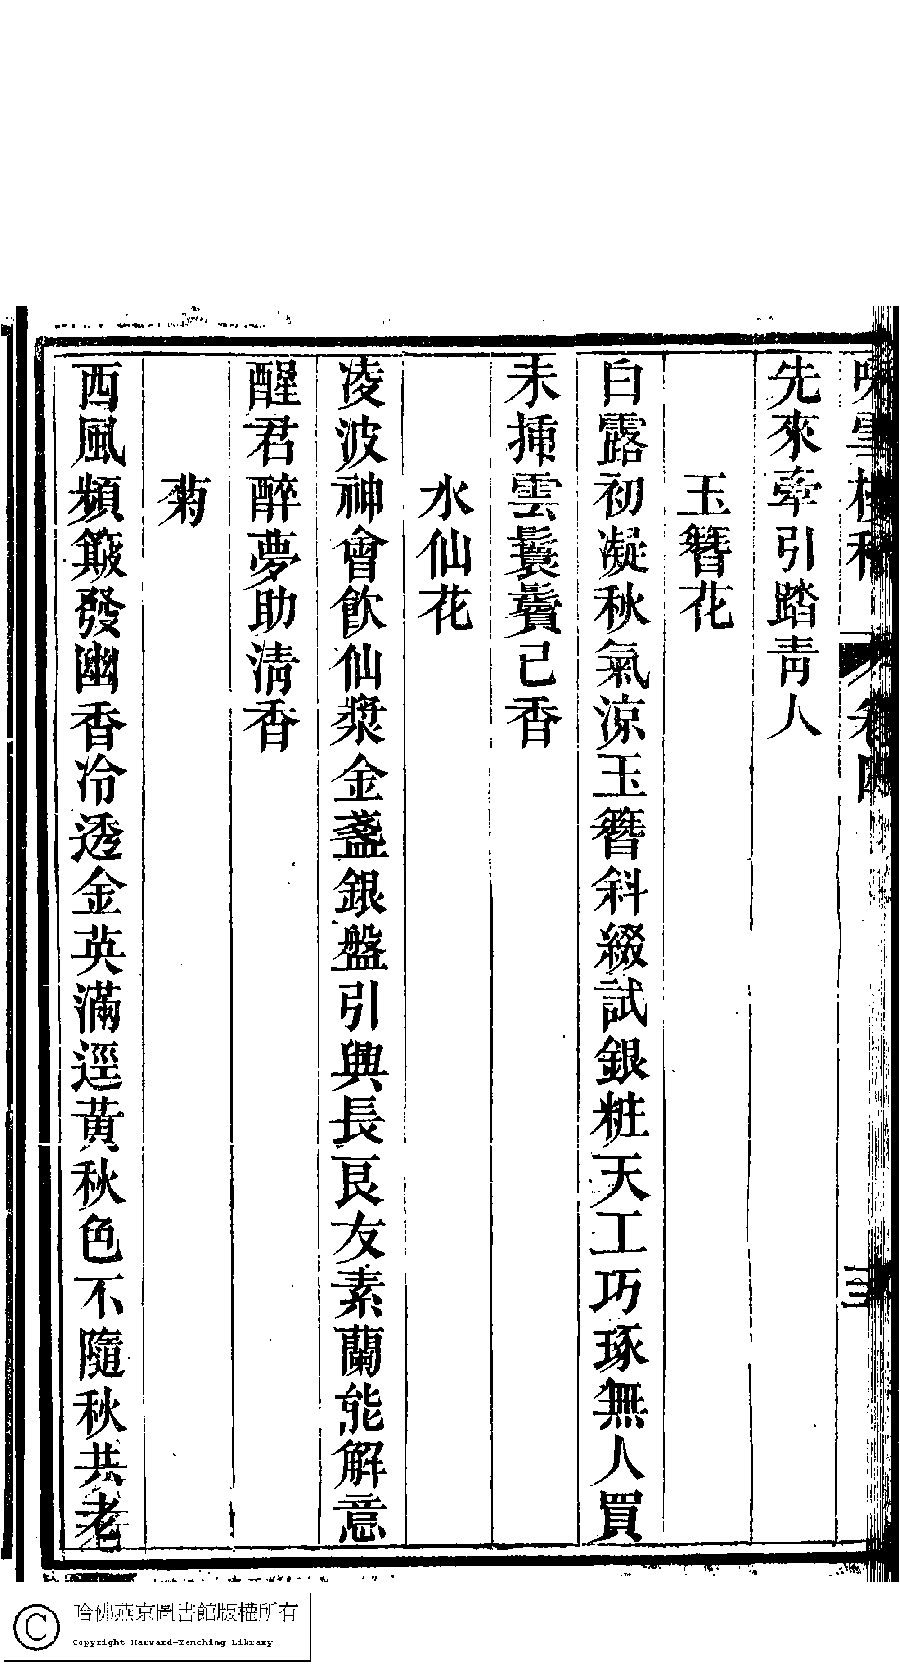 先來牽引踏青人
玉簪花
白露初凝秋氣涼玉簪斜綴試銀粧天工巧琢無人買
未插雲鬟鬢已香
水仙花
凌波神會飲仙漿金盞銀盤引興長良友素蘭能解意
醒君醉夢助清香
菊
西風頻簸發幽香冷透金英滿逕黃秋色不隨秋共老
卷四
三
哈佛燕京圖書館版權所有
Copyright Harvard-Yenching Library